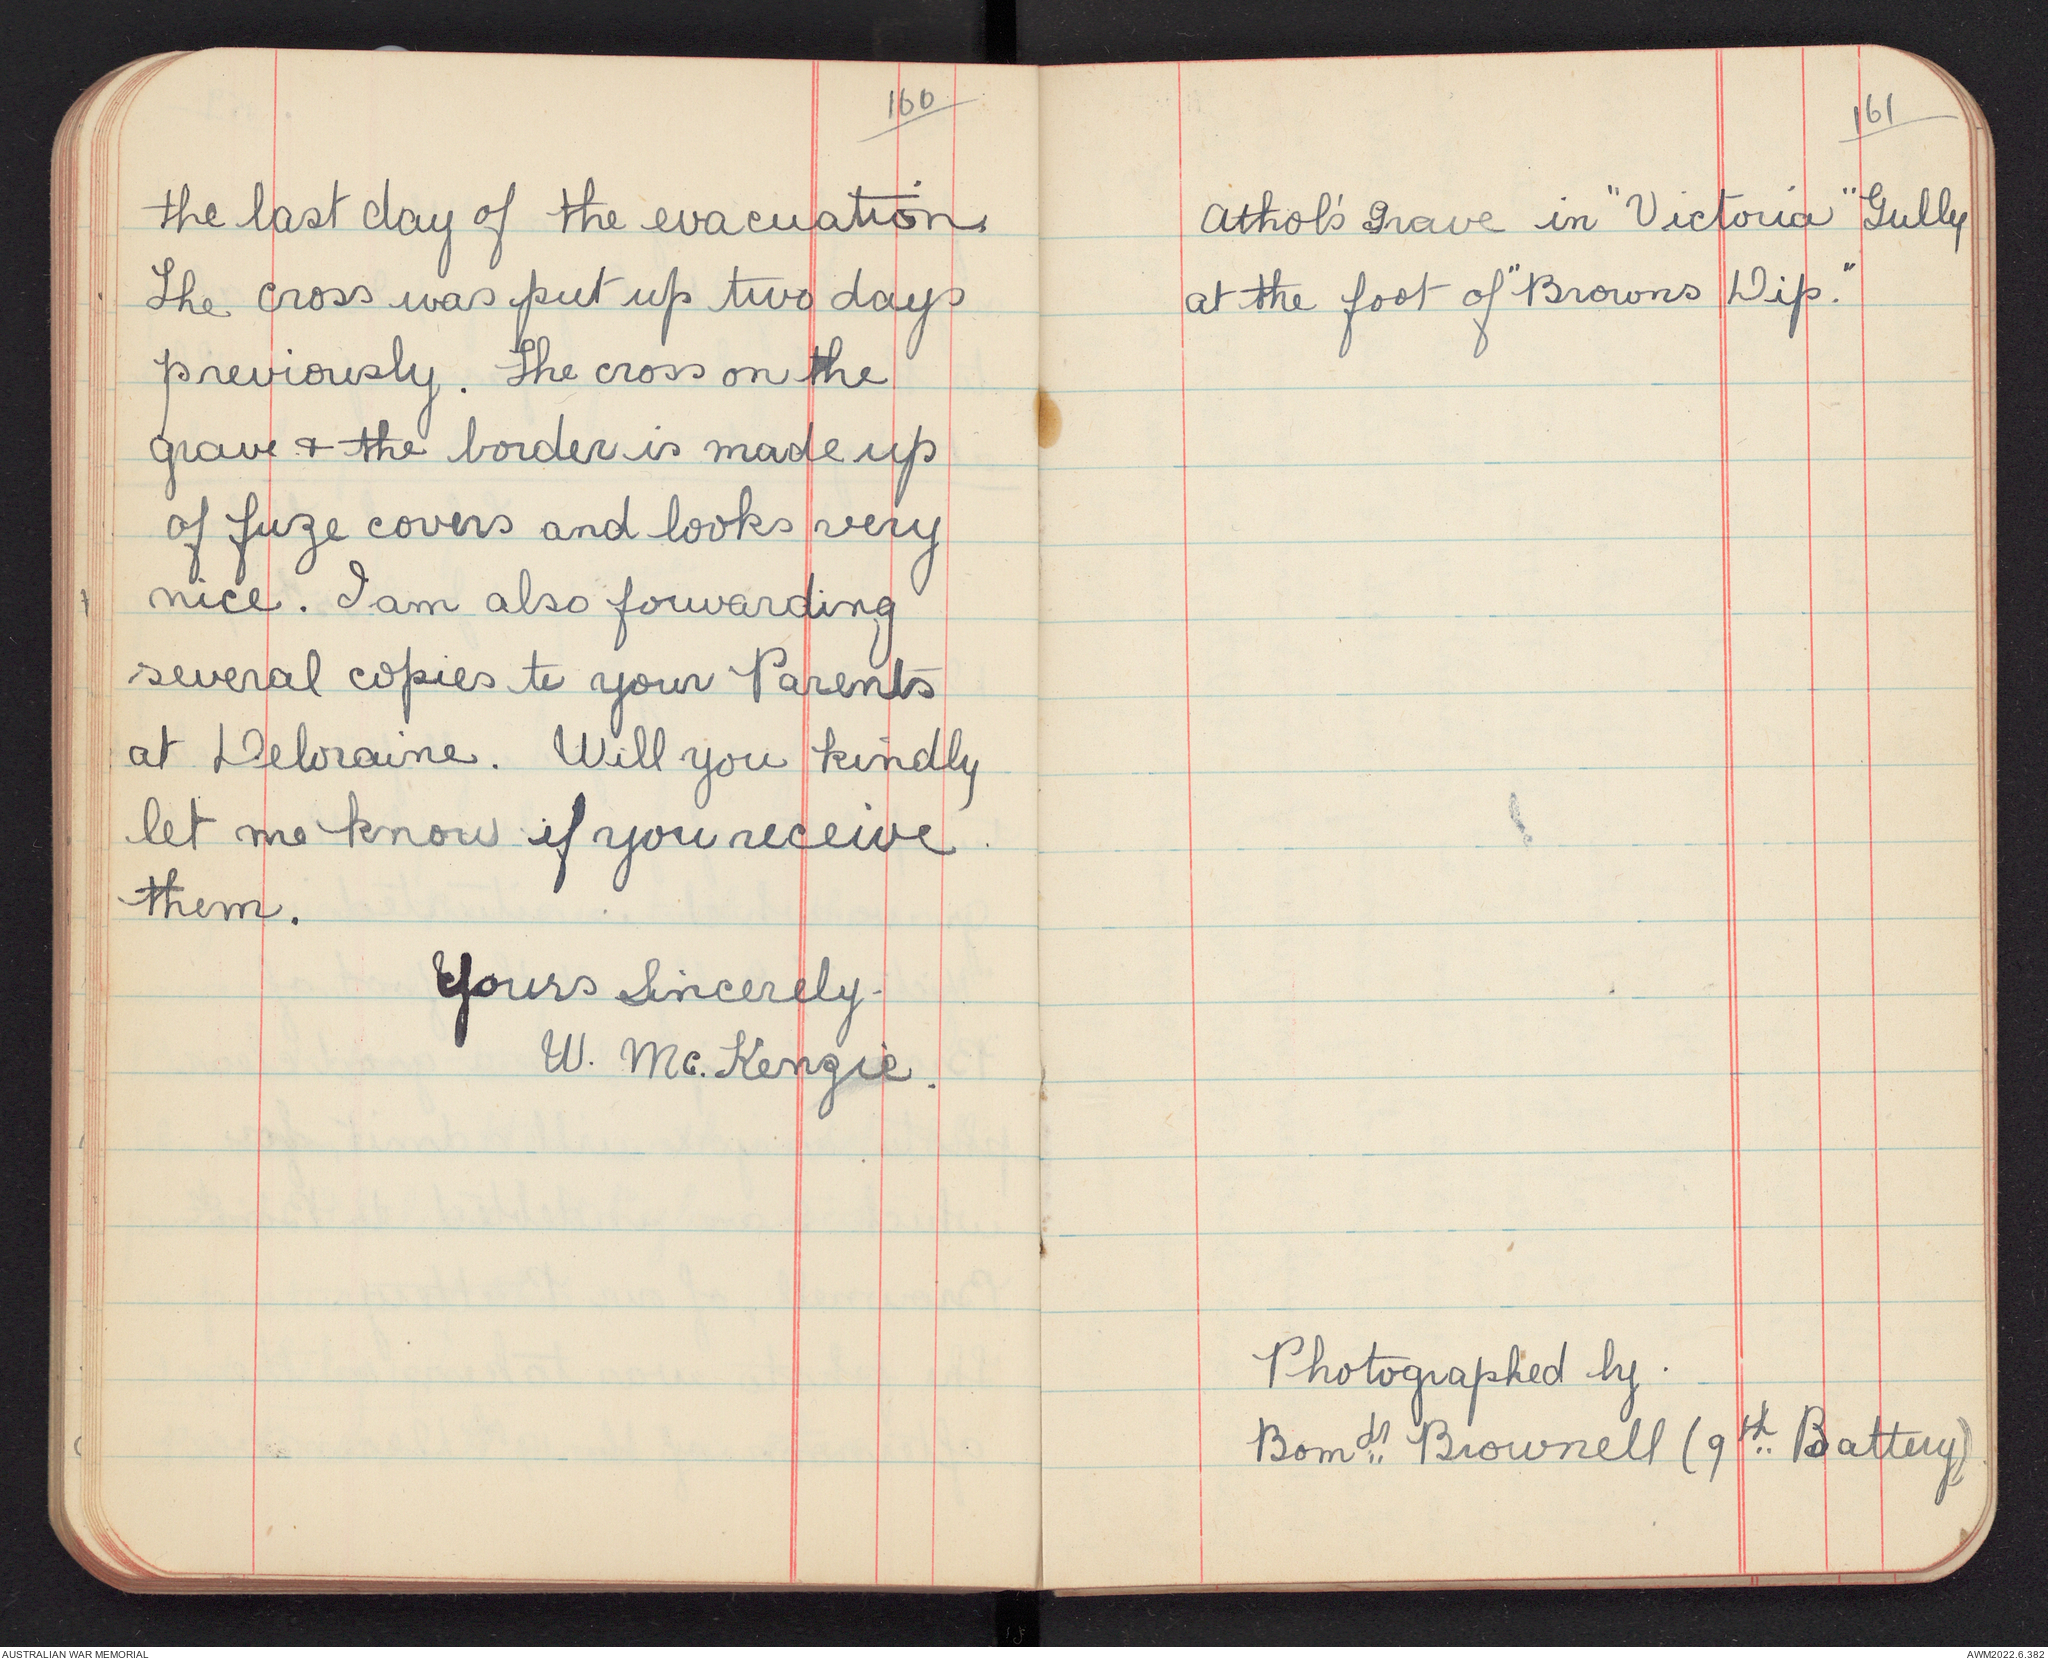 160
the last day of the evacuation.
The cross was put up two days
previously. The cross on the
grave & the border is made up
of fuze covers and looks very
nice. I am also forwarding
several copies to your Parents
at Deloraine. Will you kindly
let me know if you receive
them.
Yours Sincerely.
W. Mc.Kenzie.
161
Athol's Grave in "Victoria" Gully
at the foot of "Browns Dip."
Photographed by.
Bomdr. Brownell (9th Battery)
AUSTRALIAN WAR MEMORIAL
AWM2022.6.382